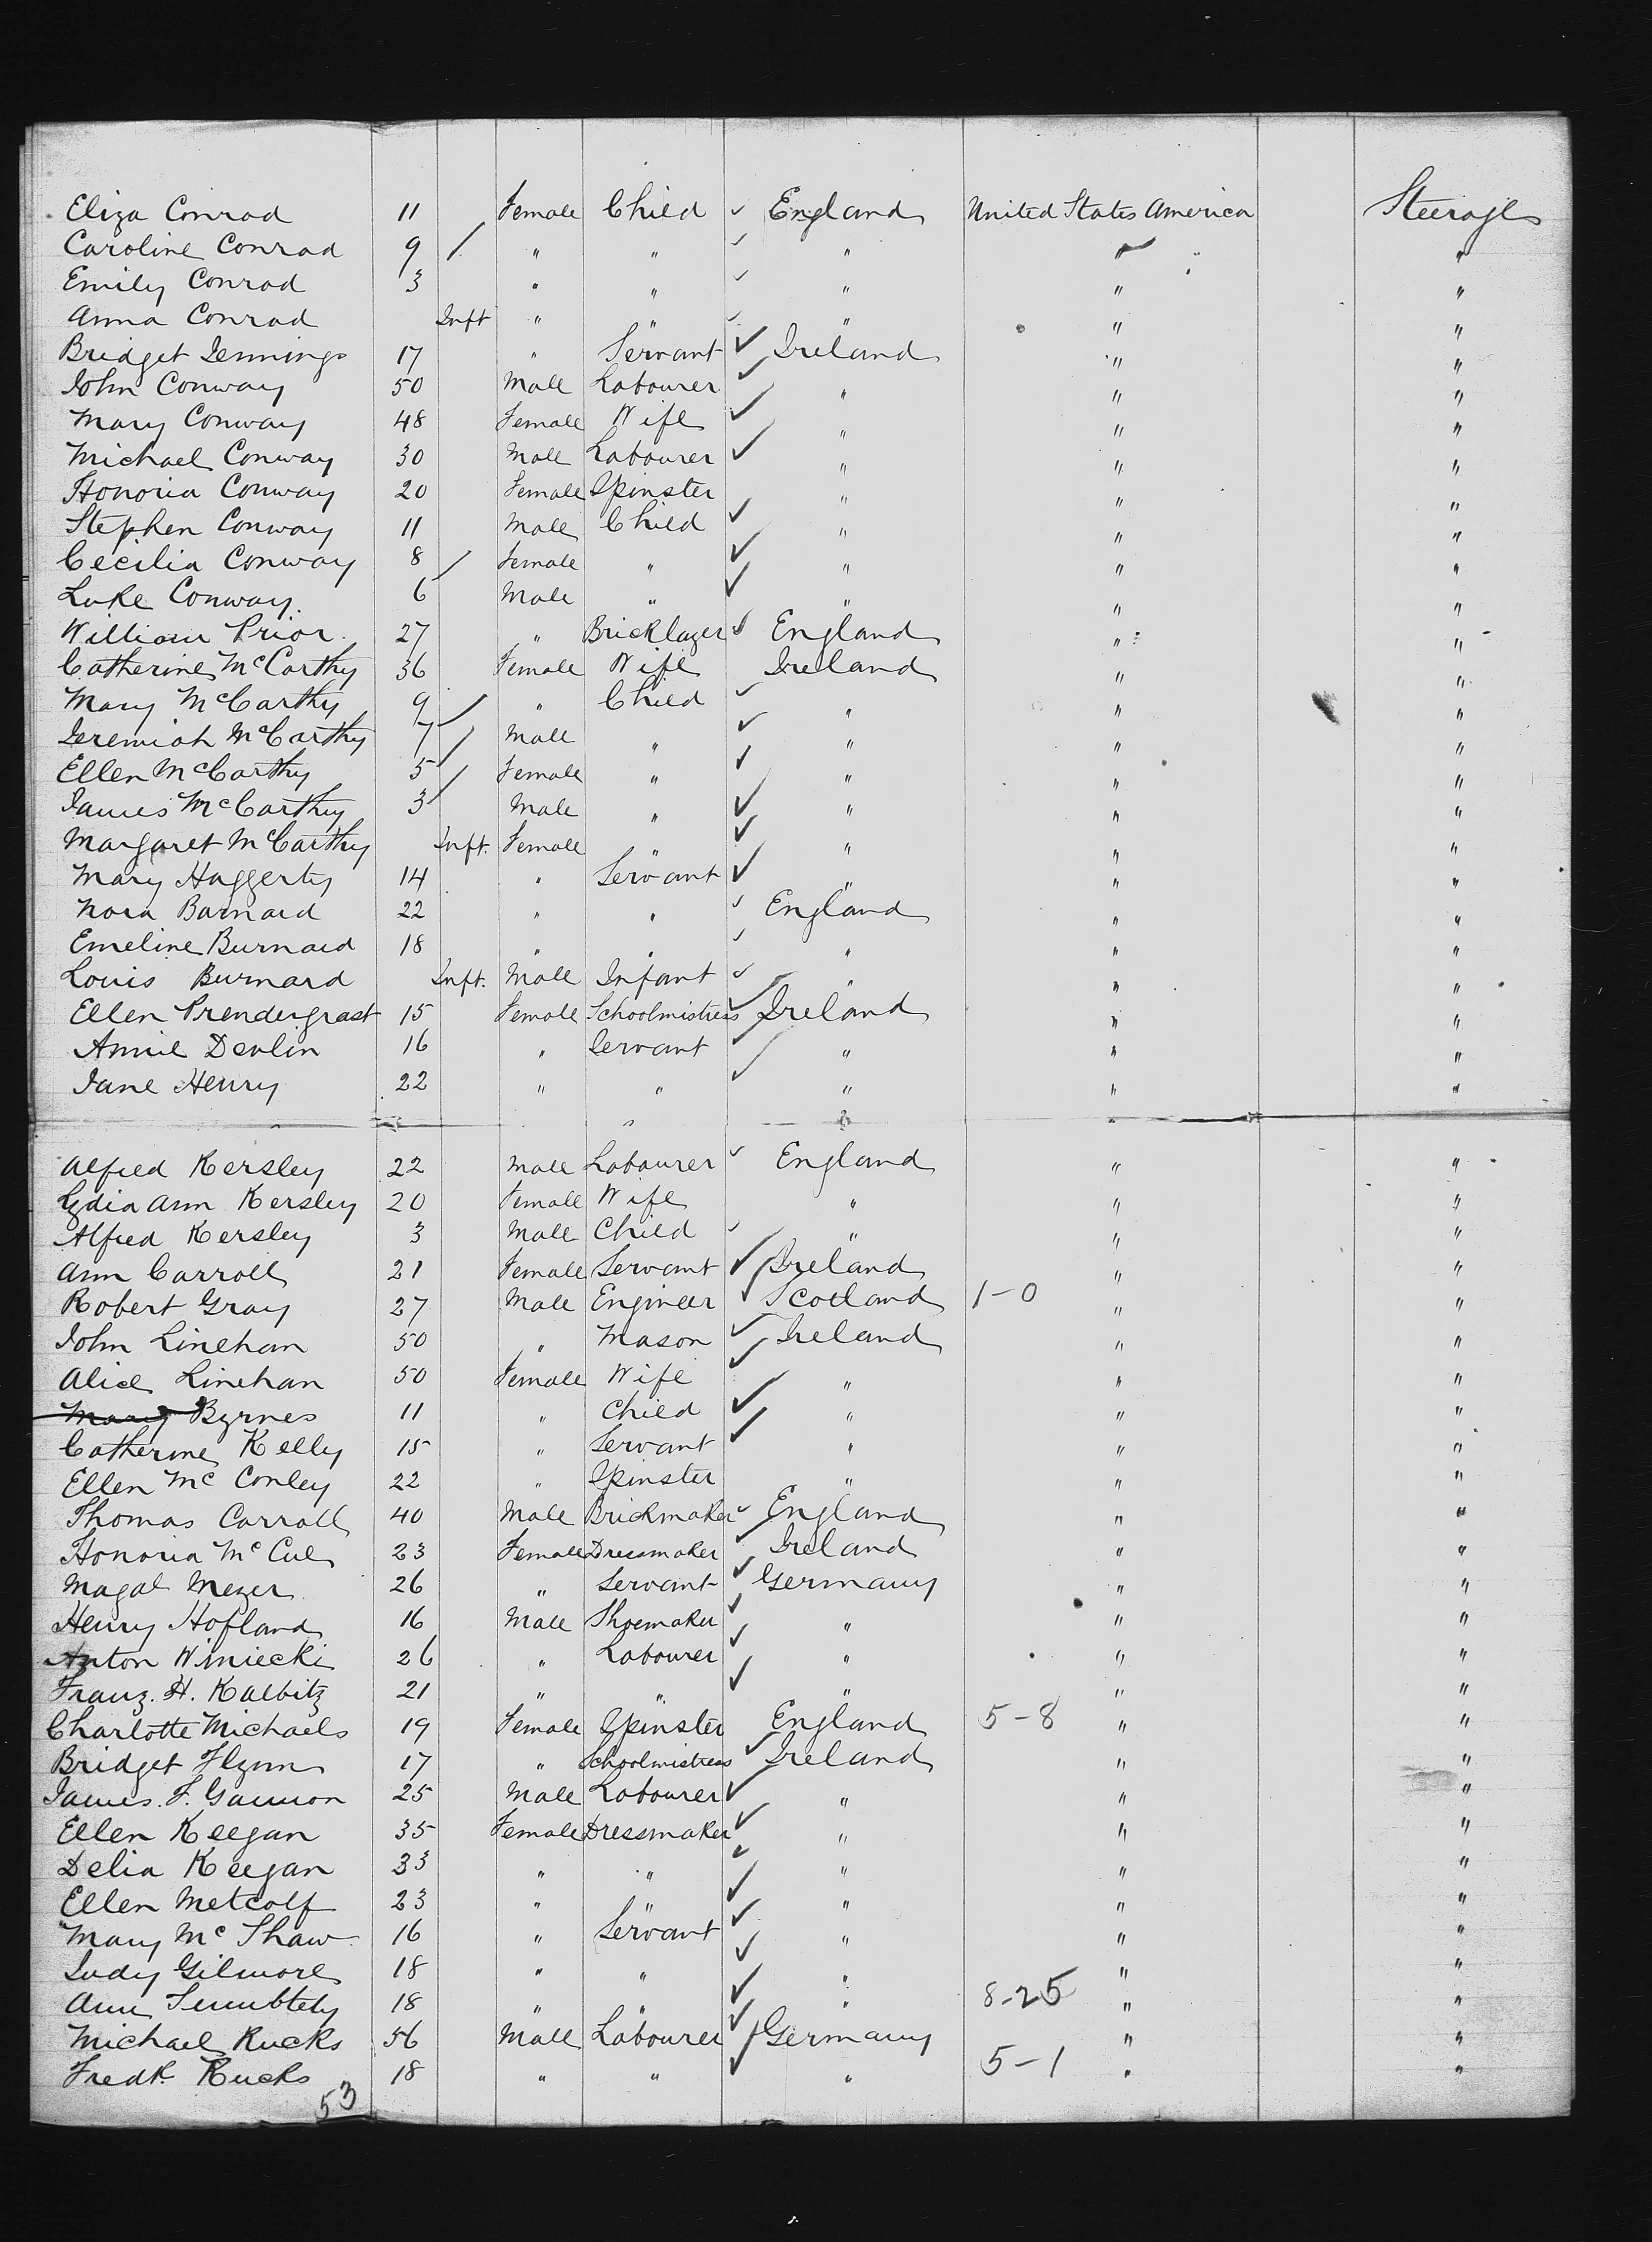 Eliza Conrad 11 Female Child England United States America Steerage
Caroline Conrad 9 " " " " "
Emily Conrad 3 " " " " "
Anna Conrad Inft " " " " "
Bridget Jennings 17 " Servant Ireland " "
John Conway 50 Male Labourer " " "
Mary Conway 48 Female Wife " " "
Michael Conway 30 Male Labourer " " "
Honoria Conway 20 Female Spinster " " "
Stephen Conway 11 Male Child " " "
Cecilia Conway 8 Female " " " "
Luke Conway. 6 Male " " " "
William Prior 27 " Bricklayer England " "
Catherine McCarthy 36 Female Wife Ireland " "
Mary McCarthy 9 " Child " " "
Jeremiah McCarthy 7 Male " " " "
Ellen McCarthy 5 Female " " " "
James McCarthy 3 Male " " " "
Margaret McCarthy Inft. Female " " " "
Mary Haggerty 14 " Servant " " "
Nora Barnard 22 " " England " "
Emeline Burnard 18 " " " " "
Louis Burnard Inft. Male Infant " " "
Ellen Prendergrast 15 Female Schoolmistress Ireland " "
Annie Devlin 16 " Servant " " "
Jane Henry 22 " " " " "
Alfred Kersley 22 Male Labourer England " "
Lydia Ann Kersley 20 Female Wife " " "
Alfred Kersley 3 Male Child " " "
Ann Carroll 21 Female Servant Ireland " "
Robert Gray 27 Male Engineer Scotland 1-0 " "
John Linehan 50 " Mason Ireland " "
Alice Linehan 50 Female Wife " " "
Mary Byrnes 11 " Child " " "
Catherine Kelly 15 " Servant " " "
Ellen Mc Conley 22 " Spinster " " "
Thomas Carroll 40 Male Brickmaker England " "
Honoria Mc Cue 23 Female Dressmaker Ireland " "
Magal Mezer 26 " Servant Germany " "
Henry Hofland 16 Male Shoemaker " " "
Anton Winiecki 26 " Labourer " " "
Franz. H. Kalbitz 21 " " " " "
Charlotte Michaels 19 Female Spinster England 5-8 " "
Bridget Flynn 17 " Schoolmistress Ireland " "
James. F. Gannon 25 Male Labourer " " "
Ellen Keegan 35 Female Dressmaker " " "
Delia Keegan 33 " " " " "
Ellen Metcalf 23 " " " " "
Mary Mc Shaw 16 " Servant " " "
Judy Gilmore 18 " " " " "
Ann 18 " " " 8-25 " "
Michael Rucks 56 Male Labourer Germany " "
Fredk Rucks 18 " " " 5-1 " "
53